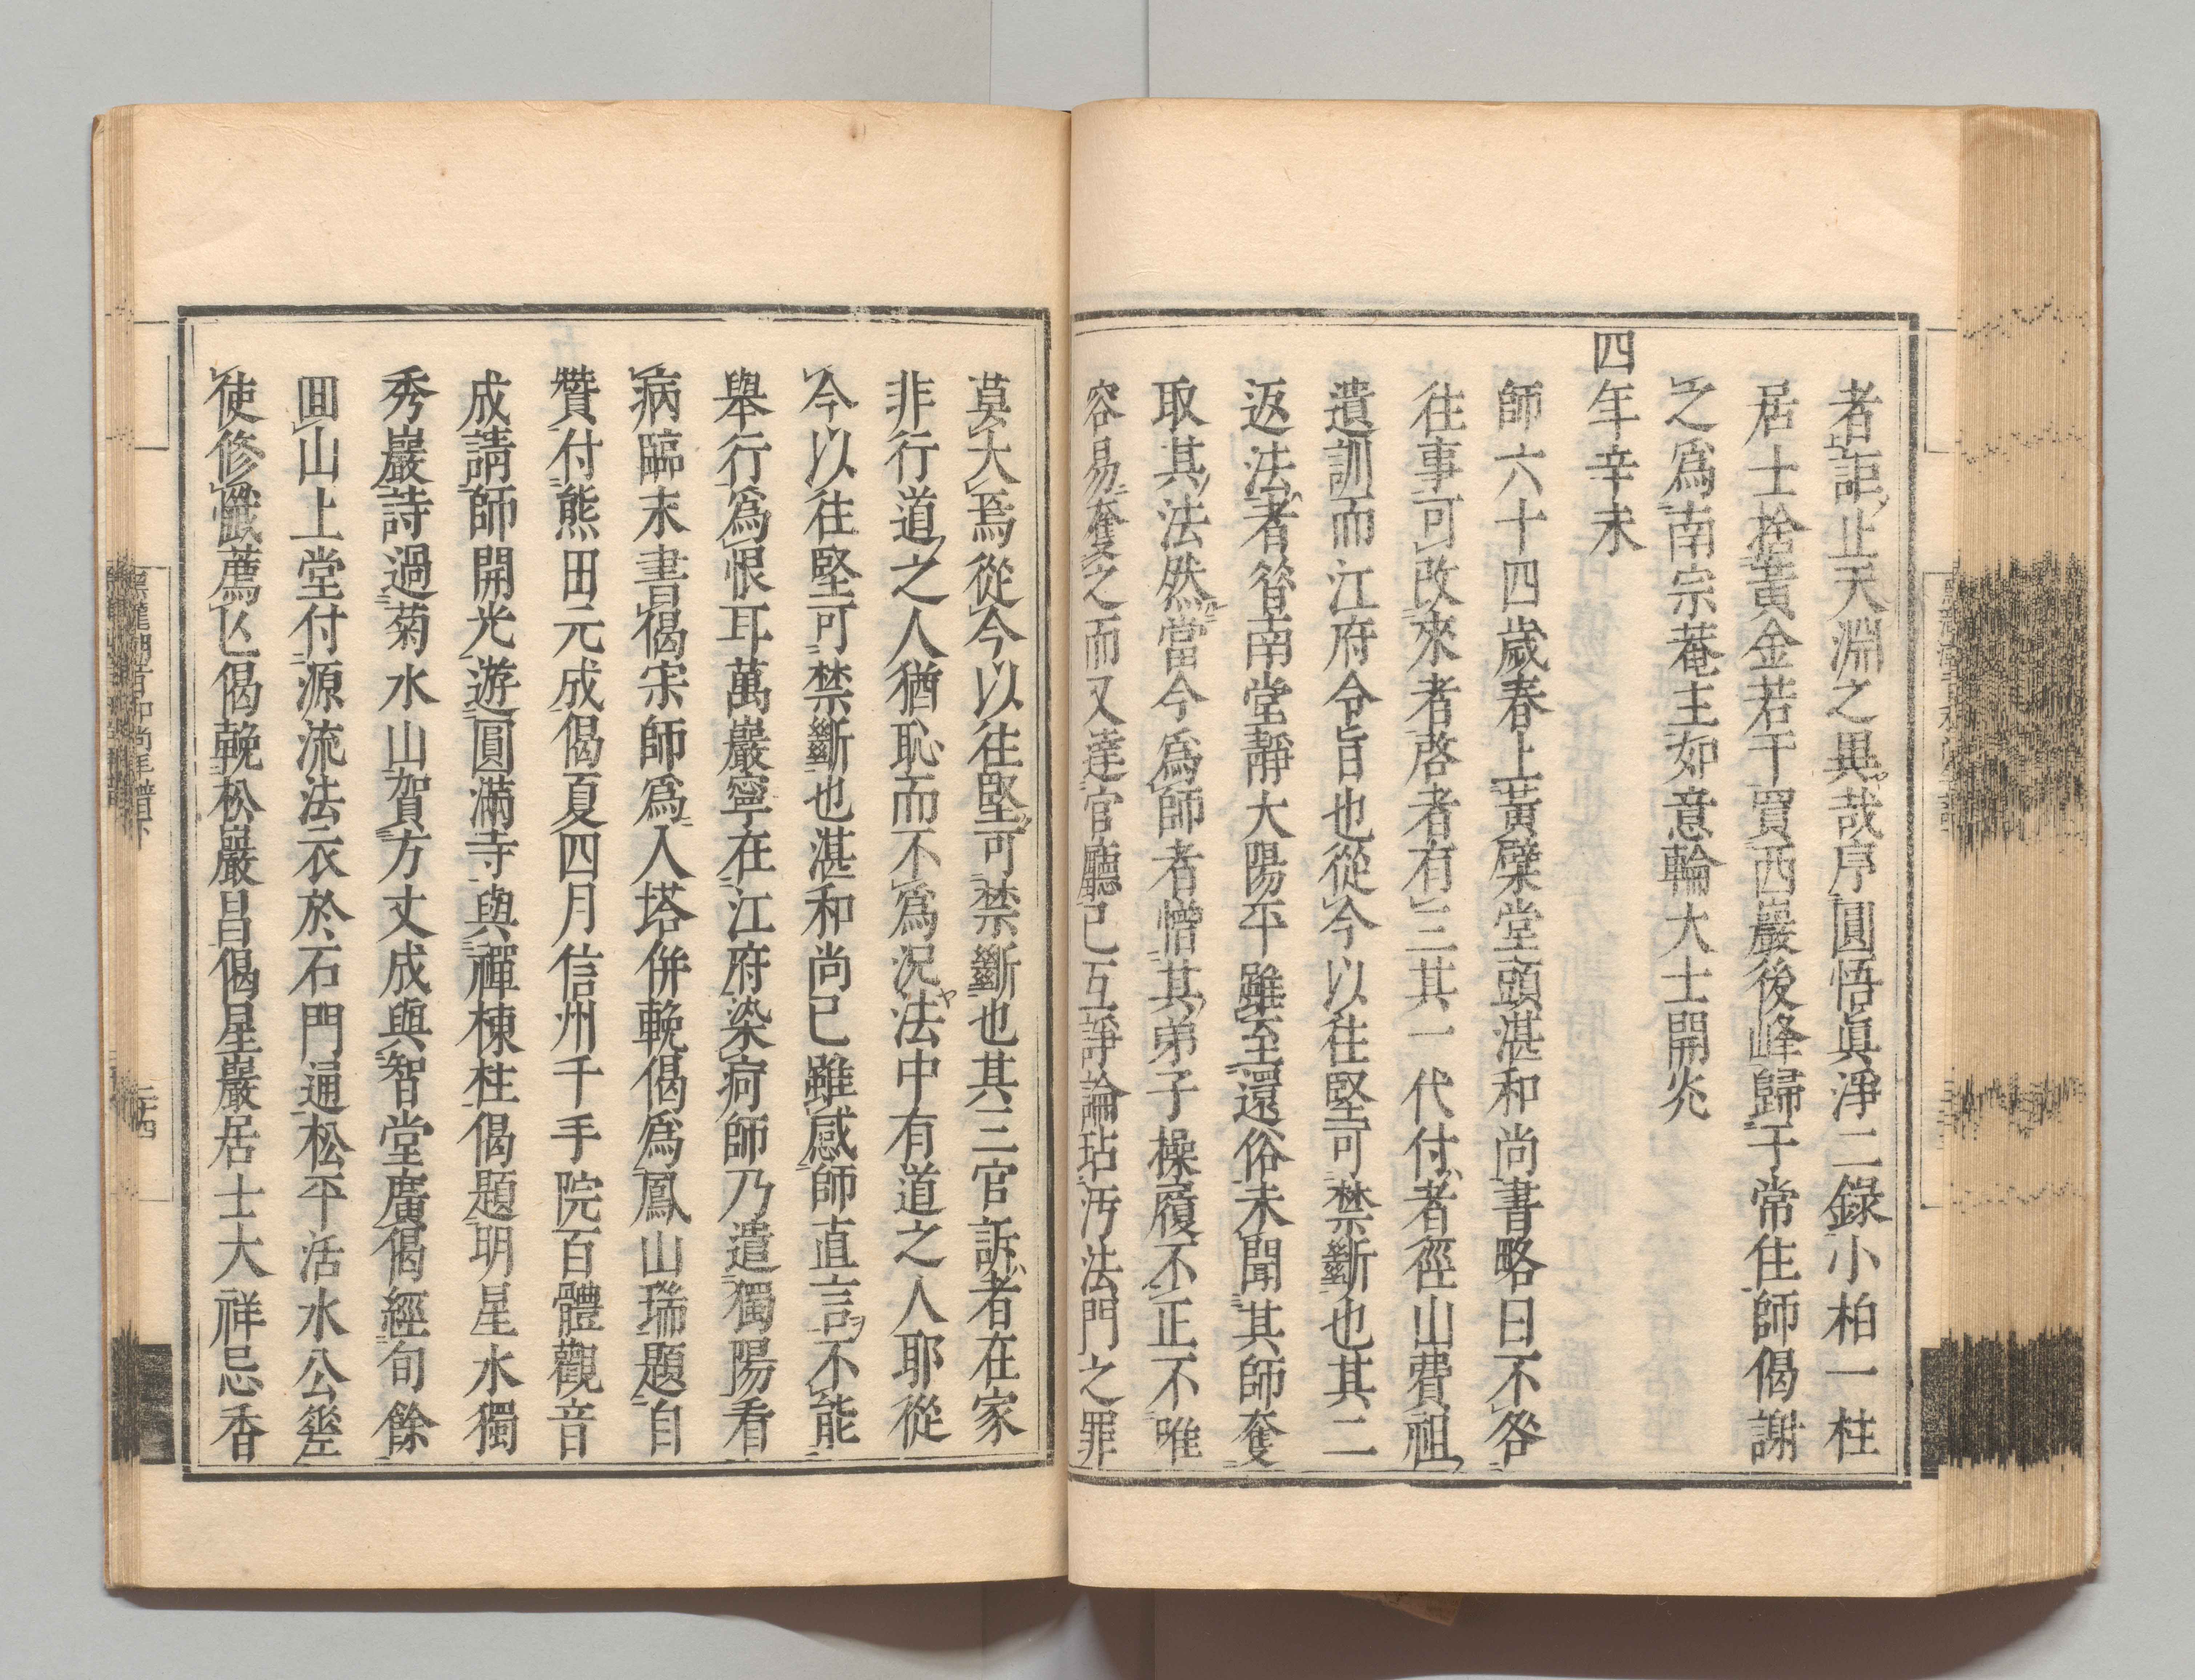 者詎止天淵之異哉序圓悟眞淨二錄小柏一柱
居士捨黃金若干買西巖後峰歸于常住師偈謝
之爲南宗菴主如意輪大士開光
四年辛未
師六十四歲春上黃檗堂頭湛和尚書略曰不咎
往事可改來者啓者有三其一代付者徑山費祖
遺訓而江府令旨也從今以往堅可禁斷也其二
返法者昝南堂靜大陽平雖至還俗未聞其師奪
取其法然當今爲師者憎其弟子操履不正不唯
容易奪之而又達官聽已互諍論玷污法門之罪
莫大焉從今以往堅可禁斷也其三官訴者在家
非行道之人猶恥而不爲況法中有道之人耶從
今以往堅可禁斷也湛和尚已雖感師直言不能
舉行爲恨耳萬巖寧在江府染疴師乃遣獨陽看
病臨末書偈宗師爲入塔併輓偈爲鳳山瑞題自
贊付熊田元成偈夏四月信州千手院百體觀音
成請師開光遊圓滿寺與禪棟柱偈題明星水獨
秀巖詩過菊水山賀方丈成與智堂廣偈經旬餘
回山上堂付源流法衣於石門通松平活水公薨
使修懺薦亾偈輓松巖昌偈星巖居士大祥忌香
黑龍潮音和尚年譜下
二十四